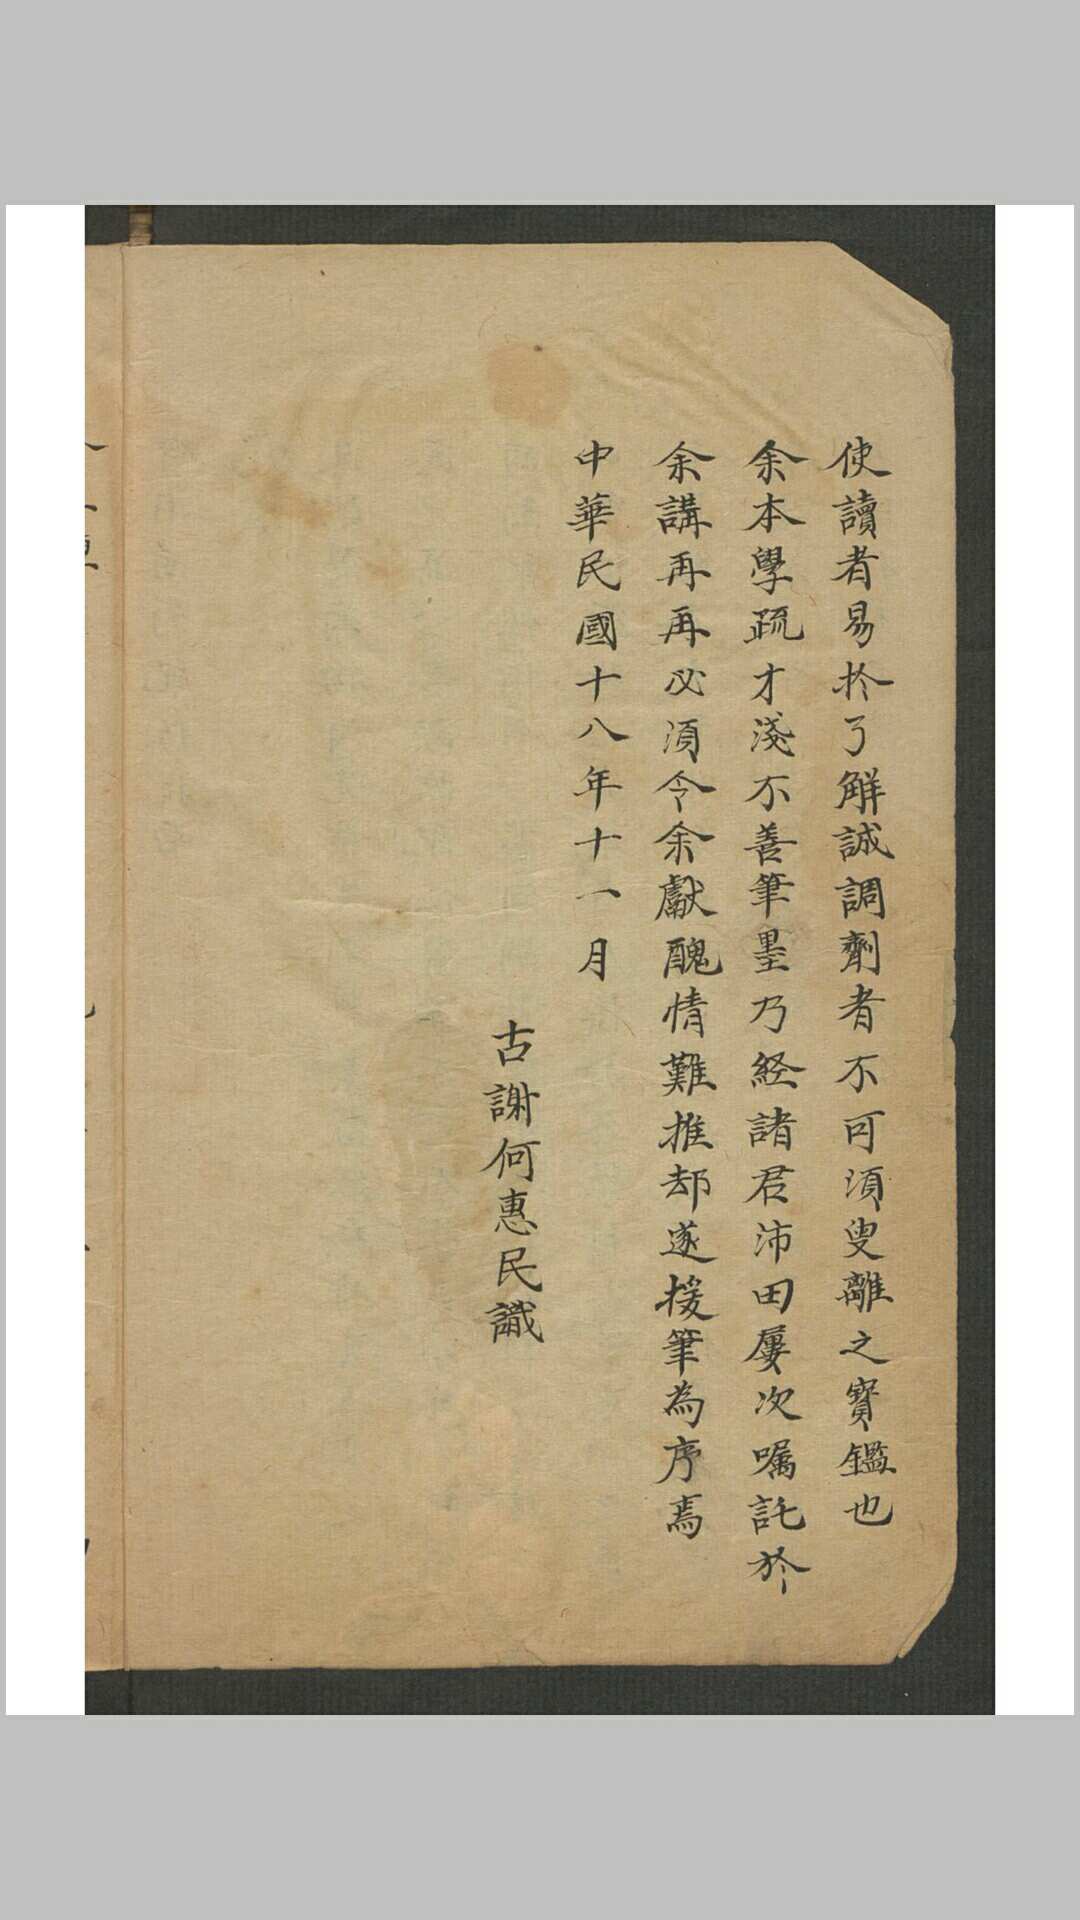 使讀者易於了解誠調劑者不可須臾離之寳鑑也
余本學疏才淺不善筆墨乃経諸君沛田屢次囑託於
余講再再必須令余獻醜情難推却遂援筆為序焉
中華民國十八年十一月
古謝何惠民識